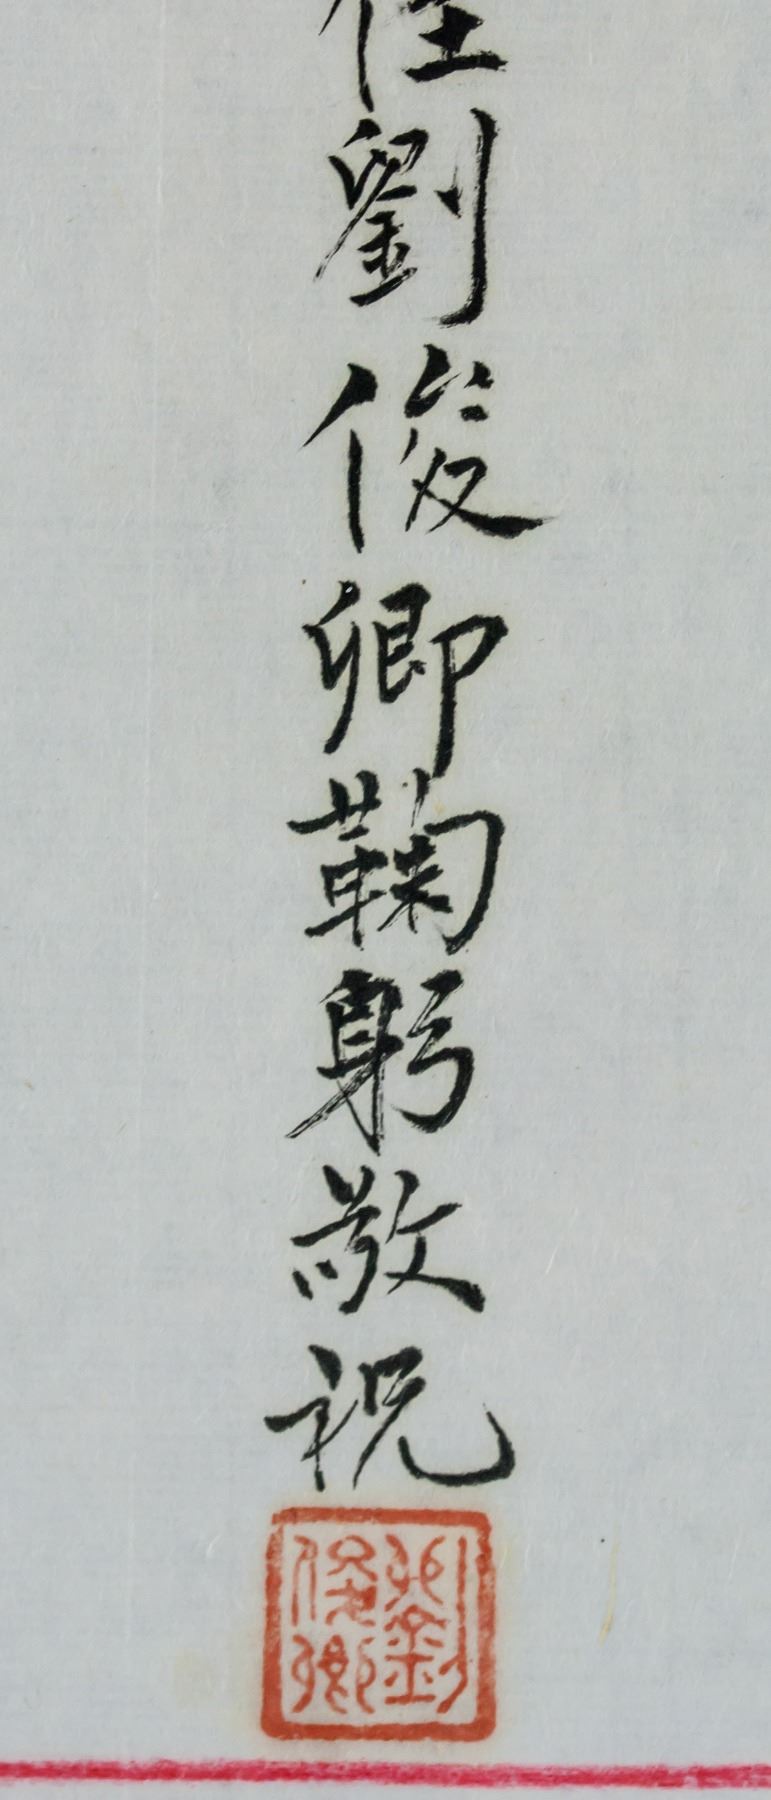 劉俊卿鞠躬敬祝
劉俊卿